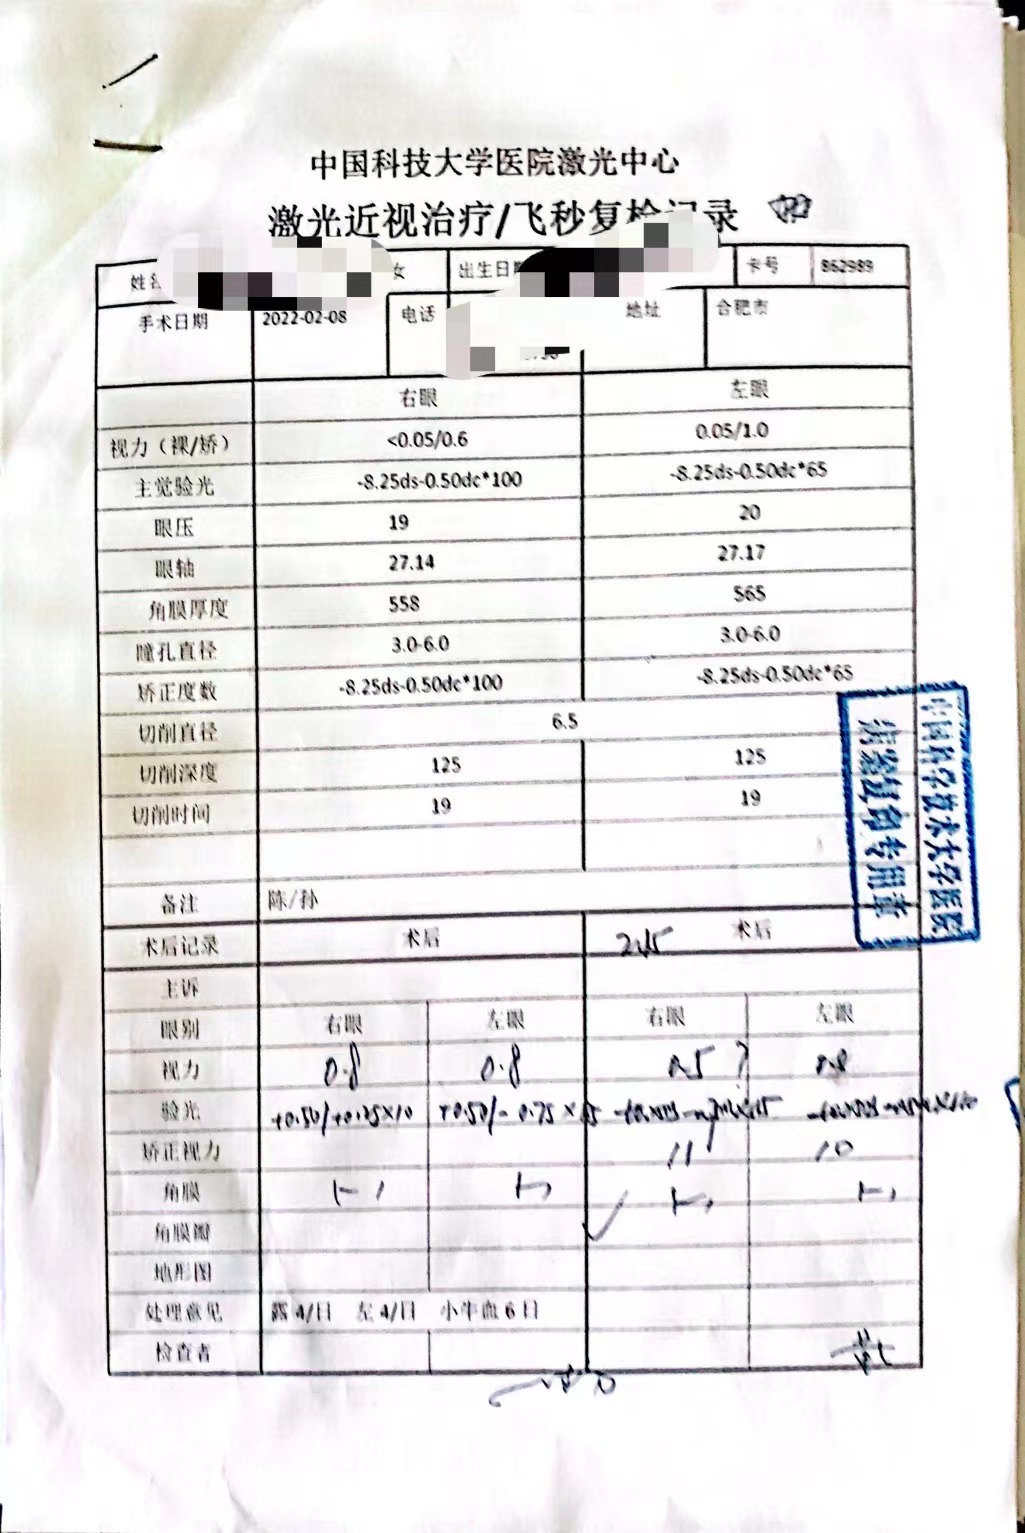 中国科技大学医院激光中心
激光近视治疗/飞秒复检记录
姓名 女 出生日期 卡号 862989
手术日期 2022-02-08 电话 地址 合肥市
右眼 左眼
视力（裸/矫） <0.05/0.6 0.05/1.0
主觉验光 -8.25ds-0.50dc*100 -8.25ds-0.50dc*65
眼压 19 20
眼轴 27.14 27.17
角膜厚度 558 565
瞳孔直径 3.0-6.0 3.0-6.0
矫正度数 -8.25ds-0.50dc*100 -8.25ds-0.50dc*65
切削直径 6.5
切削深度 125 125
切削时间 19 19
中国科学技术大学医院
病案复印专用章
备注 陈/孙
术后记录 术后 术后
主诉
眼别 右眼 左眼 右眼 左眼
视力 0.8 0.8 0.8
验光 +0.50/+0.25×10 +0.50/-0.75×
矫正视力 10
角膜
角膜瓣
地形图
处理意见 露4/日 左4/日 小牛血6日
检查者